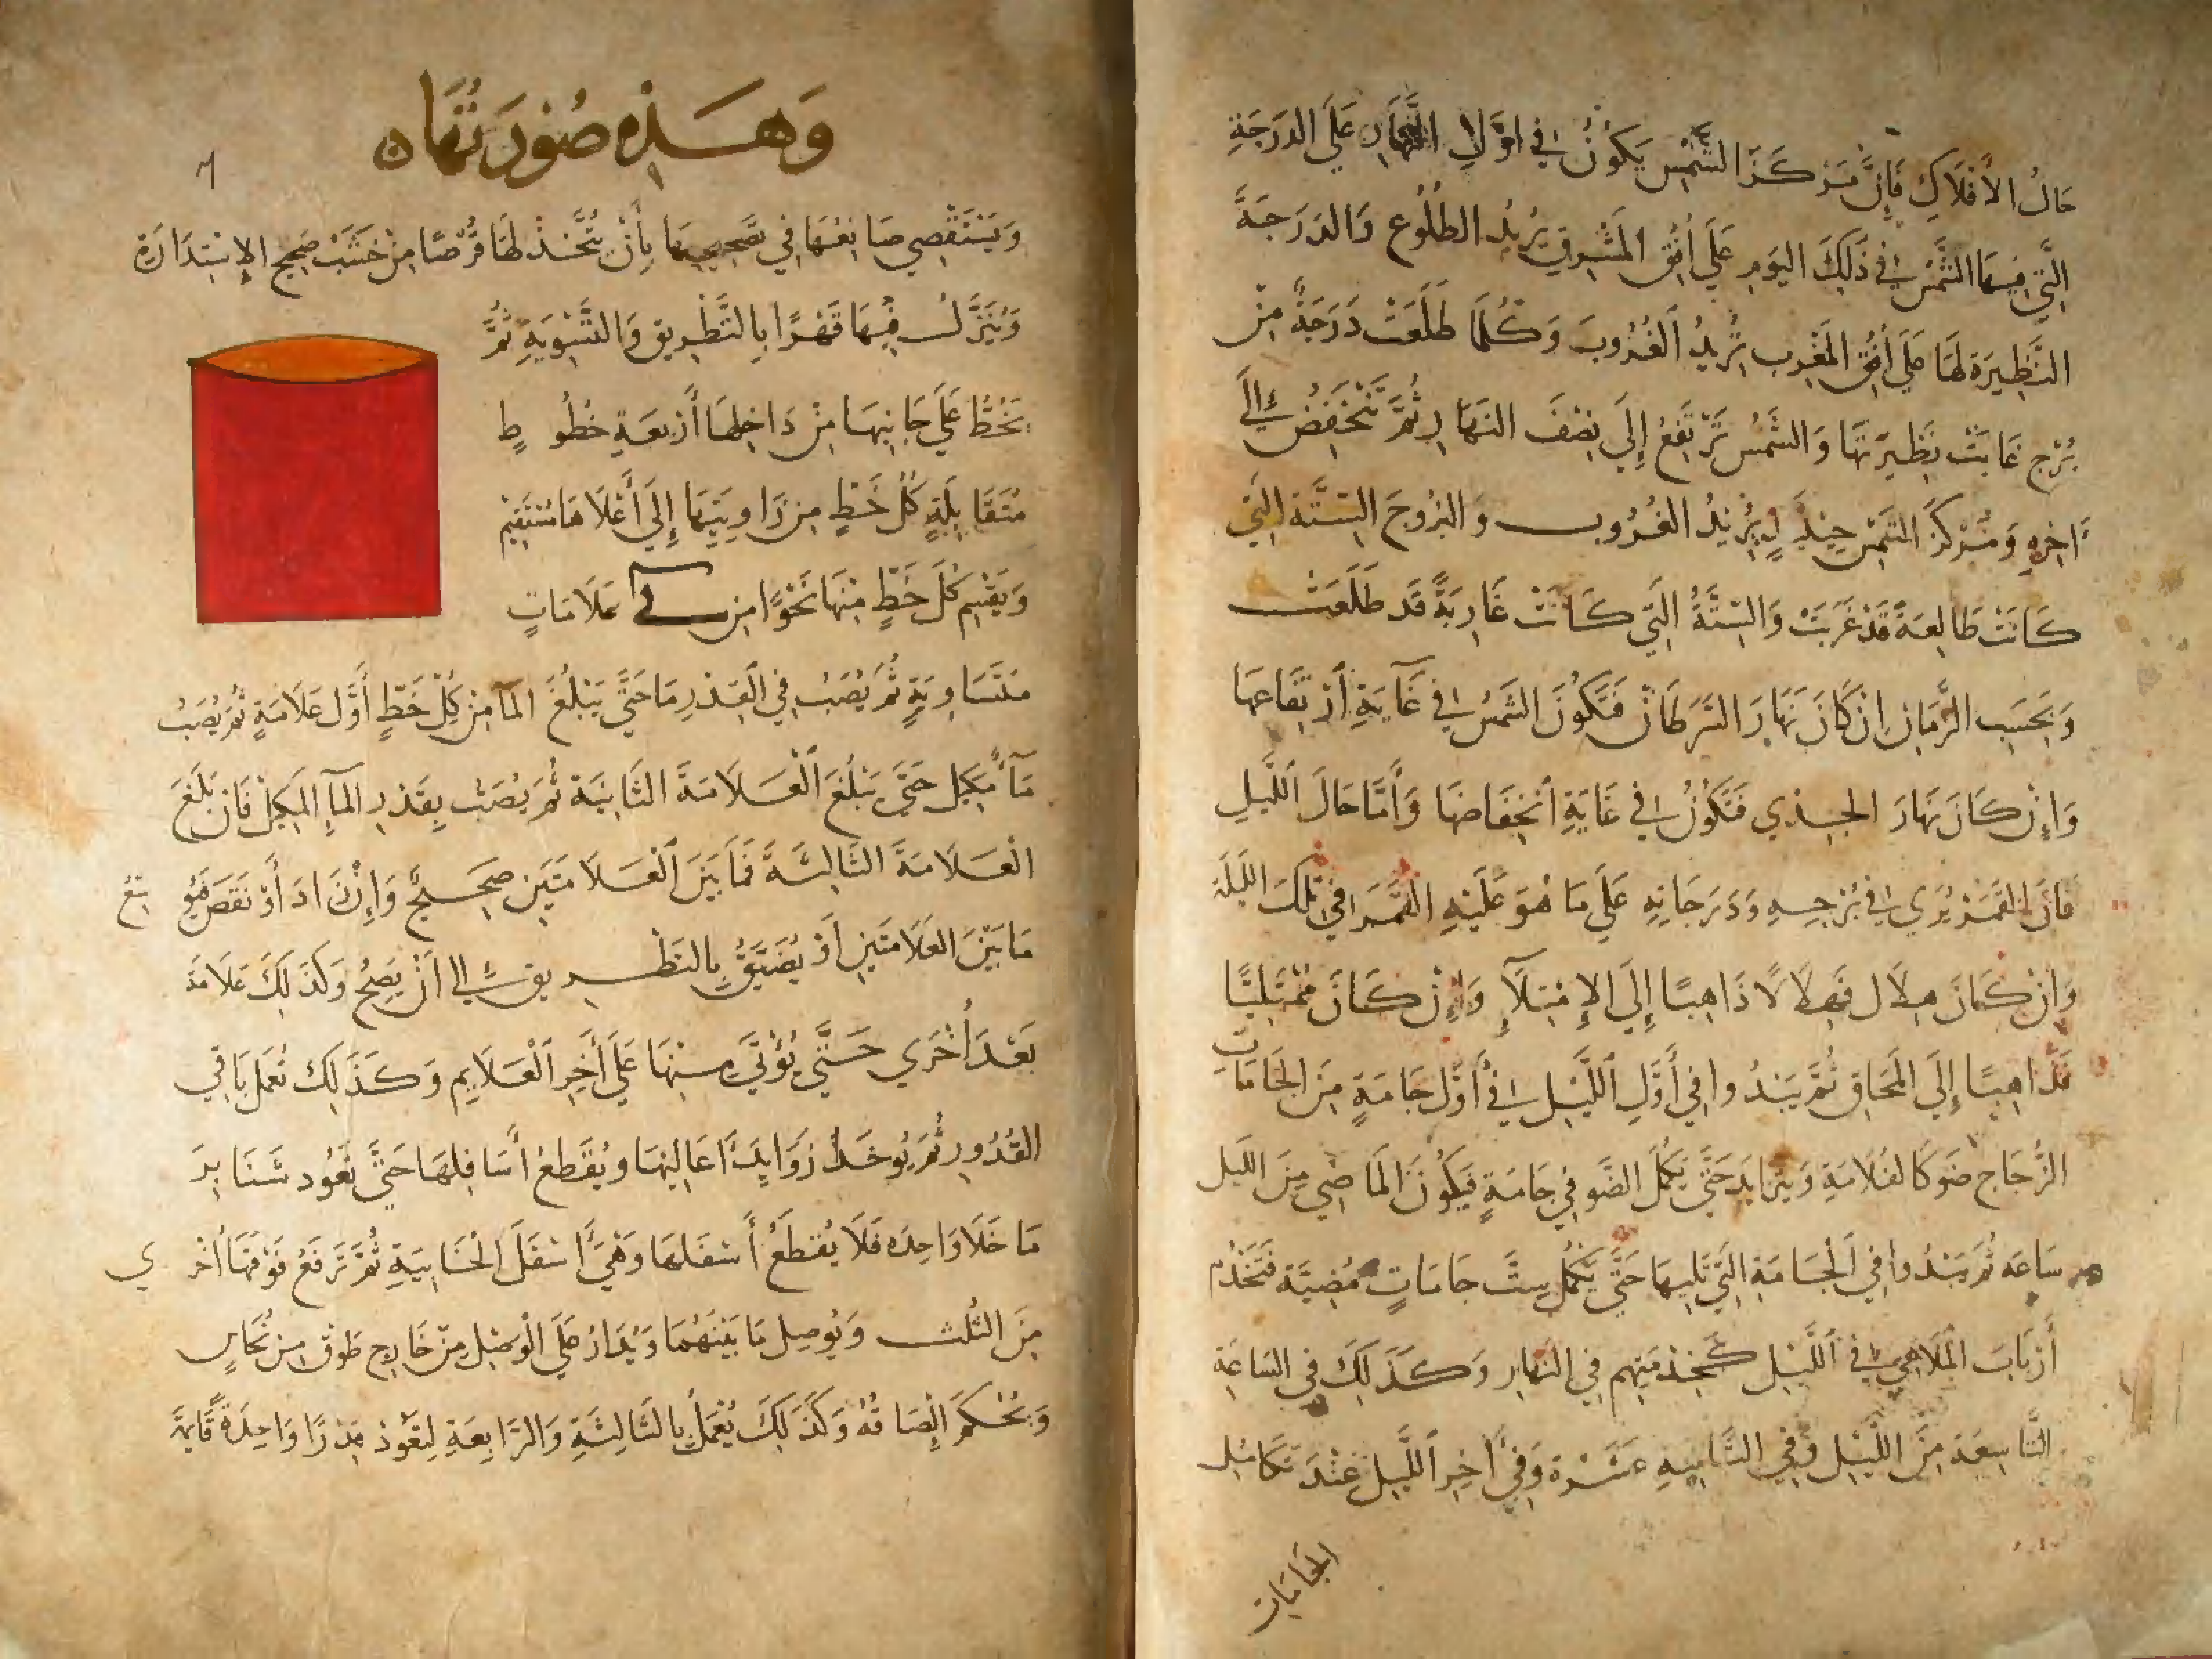 حَالُ الأَفْلَاكِ فَإِنَّ مَرْكَزَ الشَّمْسِ يَكُوْنُ فِي اوَّلِ النَّهَارِ عَلَى الدَرَجَةِ
الَّتِي فِيهَا الشَّمْسُ فِي ذَلِكَ اليَومِ عَلَى أُفُقِ المَشْرِقِ يُرِيْدُ الطُلُوع وَالدَرَجَةُ
النَّظِيرَةِ لَهَا عَلَى أُفُقِ المَغْرِبِ تُرِيْدُ الْغُرُوبَ وَكُلَّمَا طَلَعَتْ دَرَجَةٌ مِنْ
بُرْجٍ غَابَتْ نَظِيْرَتَهَا وَالشَّمْسُ تَرْتَفِعُ إِلَى نِصْفَ النَهَارِ ثُمَّ تَنْخَفِضُ إِلَى
آخِرِهِ وَمَرْكَزُ الشَّمْسِ حِينَئِذٍ يُرِيْدُ الغُرُوب وَالبُرُوجَ السِتَّةَ الَّتِي
كَانَتْ طَالِعَةً قَدْ غَرَبَتْ وَالسِّتَّةُ الَّتِي كَانَتْ غَارِبَةً قَد طَلَعَت
وَبِحَسَبِ الزَّمَانِ ان كَانَ نَهَارَ السَرَطَانْ فَتَكُوْنَ الشَّمْسُ فِي غَآيَةِ أَرْتِفَاعِهَا
وَإِنْ كَانَ نَهَارَ الجَدْي فَتَكُوْنُ فِي غَايَةِ أنْخِفَاضِهَا وَأَمَّا حَالَ اللَّيلِ
فَانَّ القَمَرْ يُرَي فِي بُرْجِهِ وَدَرَجَاتِهِ عَلَى مَا هُوَ عَلَيْهِ القَمَرَ فِي تِلْكَ اللَيْلَة
وَانْ كَانَ هِلَال فَهِلَالاً ذَاهِبًا إِلَى الإِمْتِلَآءِ وَإِنْ كَانَ مُمْتَلِيًّا
فَذَاهِبًا إِلَى المَحَاق ثُمَّ يَبْدُوا فِي أَوَّلِ اللَّيْلِ فِي أَوَّلِ جَامَةٍ مِنَ الجَامَاتِ
الزُّجَاج ضَوكَالقُلَامَةِ وَيَتَزايَد حَتَّى يَكْمُلَ الضَّو فِي جَامَةٍ فَيَكُونَ المَاضِي مِنَ اللَيل
سَاعَه ثُمَّ يَبْدُوا فِي الْجَامَةِ الَّتِي تَلِيهَا حَتَّى يَكْمُلُ سِتَّ جَامَاتٍ مُضِيَّة فَتَخْدُم
أَرْبَابَ المَلَاهِي فِي اللَّيْلِ كَخِدْمَتِهِم فِي النَهَارِ وَكَذَلِكَ فِي السَاعَةِ
التَّاسِعَة مِنَ اللَّيْلِ وَفِي الثَّانِيَةِ عَشْرَةَ وَفِي أَخِر اللَّيلِ عِنْدَ تَكَامُلِ
الجَامَاتِ
وَهَذِهِ صُوْرَتُهَا ه
وَيَسْتَقْصِي صَانِعُهَا فِي تَصْحِيْحِهَا بِأَنْ يُتَّخَذْ لَهَا قُرْصًا مِنْ خَشَبْ صَحِيْح الإِسْتِدَارَةِ
وَيُنَزَّلُ فِيْهَا قَهْرًا بِالتَّطْرِيقِ وَالتَّسْوِيَةِ ثُمَّ
يَخُطُّ عَلَى جَانِبِهَا مِنْ دَاخِلِهَا أَرْبَعَةِ خُطُوطٍ
مُتَقَابِلَةٍ كُلُّ خَطٍّ مِنْ زَاوِيَتِهَا إِلَى أَعْلَاهَا مُسْتَقِيْم
وَيَقْسِم كُلَّ خَطٍّ مِنْهَا نَحْوًا مِن عَلَامَاتٍ
مُتَسَاوِيَةٍ ثُمَّ يُصَبُ فِي الْقِدْرِ مَا حَتَّى يَبْلُغُ المَآ مِنْ كُلِّ خَطٍّ أَوَّل عَلَامَةٍ ثُمَّ يُصَبُ
مَآ مَكِيل حَتَّى يَبْلُغَ الْعَلَامَةَ الثَّانِيَة ثُمَّ يُصَبُ بِقَدْرِ المَآءِ المَكِيْل فَان بَلَغَ
الْعَلَامَةَ الثَّالِثَةَ فَمَا بَيْنَ الْعَلَامَتَيْن صَحِيحٌ وَإِنْ زَادَ أَوْ نَقَصَ فَيُوسَّعُ
مَا بَيْنَ العَلَامَتَيْنِ أَوْ يُضَيَّقُ بِالتَطْرِيقِ إِلَى أَنْ يَصِحُّ وَكَذَلِكَ عَلَامَة
بَعْدَ أُخْرَي حَتَّى يُؤْتَى مِنْهَا عَلَى أَخِرِ الْعَلَايِمِ وَكَذَلِكَ تُعْمَل بَاقِي
القُدُورِ ثُمَّ يُوخَذُ زَوَايِدَ أَعَالِيْهَا وَيُقْطَعُ أَسَافِلهَا حَتَّى تَعُود شَنَابِرَ
مَا خَلَا وَاحِدَه فَلَا يُقْطَعُ أَسْفَلهَا وَهْيَ أَسْفَلَ الْخَابِيَةِ ثُمَّ تُرْفَعُ فَوْقَهَا أُخْرَي
مِنَ الثُّلُث وَيُوصِل مَا بَيْنَهُمَا وَيُدَارُ عَلَى الْوَصْلِ مِنْ خَارِج طَوْق مِنْ نُحَاسٍ
وَيُحْكَمَ إِلْصَاقُهُ وَكَذَلِكَ يُعْمَلُ بِالثَالِثَةِ وَالرَابِعَةِ لِتَعُوْدَ قِدْرًا وَاحِدَةً قَايِمَةً